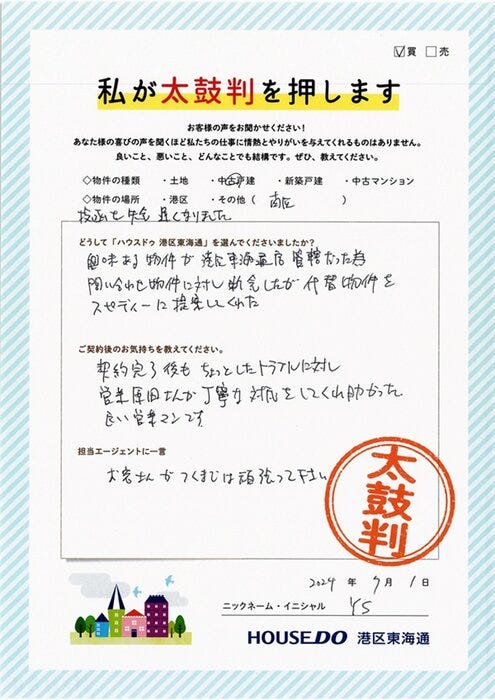 ☑買 □売
私が太鼓判を押します
お客様の声をお聞かせください！
あなた様の喜びの声を聞くほど私たちの仕事に情熱とやりがいを与えてくれるものはありません。
良いこと、悪いこと、どんなことでも結構です。ぜひ、教えてください。
◇物件の種類 ・土地 ・中古戸建 ・新築戸建 ・中古マンション
◇物件の場所 ・港区 ・その他（ 南区 ）
遅くなりました
どうして「ハウスドゥ 港区東海通」を選んでくださいましたか？
興味ある物件が港区東海通店管轄だった為
問い合わせ物件に対し断念したが代替物件を
スピーディーに提案してくれた
ご契約後のお気持ちを教えてください。
契約完了後もちょっとしたトラブルに対し
営業原田さんが丁寧な対応をしてくれ助かった
良い営業マンです
担当エージェントに一言
お客さんがつくまでは頑張って下さい
太鼓判
2024 年 7月 1日
ニックネーム・イニシャル YS
HOUSEDO 港区東海通